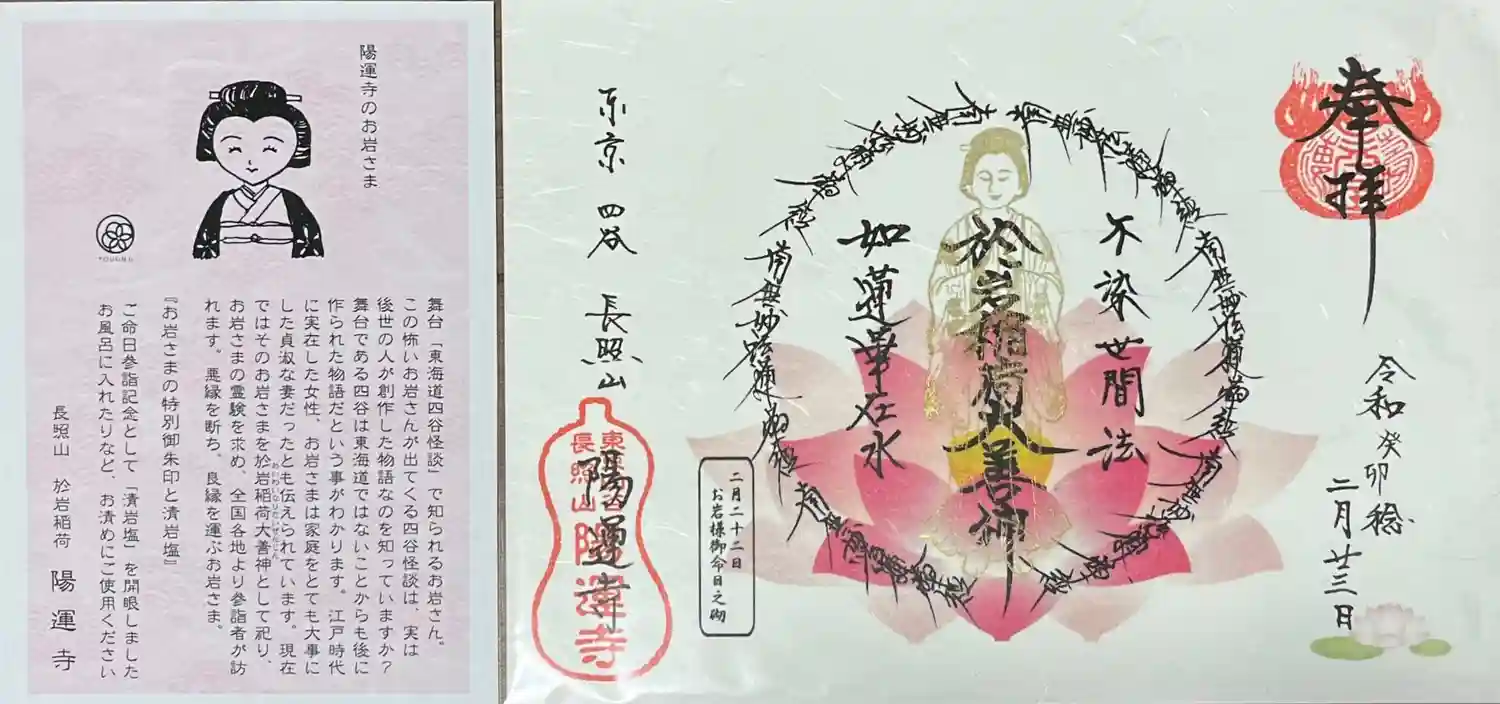 陽運寺のお岩さま
YOUUNJI
舞台「東海道四谷怪談」で知られるお岩さん。
この怖いお岩さんが出てくる四谷怪談は、実は
後世の人が創作した物語なのを知っていますか？
舞台である四谷は東海道ではないことからも後に
作られた物語だという事がわかります。江戸時代
に実在した女性、お岩さまは家庭をとても大事に
した貞淑な妻だったとも伝えられています。現在
ではそのお岩さまを於岩稲荷大善神として祀り、
お岩さまの霊験を求め、全国各地より参詣者が訪
れます。悪縁を断ち、良縁を運ぶお岩さま。
『お岩さまの特別御朱印と清岩塩』
ご命日参詣記念として「清岩塩」を開眼しました
お風呂に入れたりなど、お清めにご使用ください
長照山 於岩稲荷 陽運寺
奉拝
令和癸卯稔
二月廿三日
不染世間法
於岩稲荷大善神
如蓮華在水
南無妙法蓮華経
二月二十二日
お岩様御命日之砌
东京 四谷 長照山
陽運寺
長照山
陽運寺